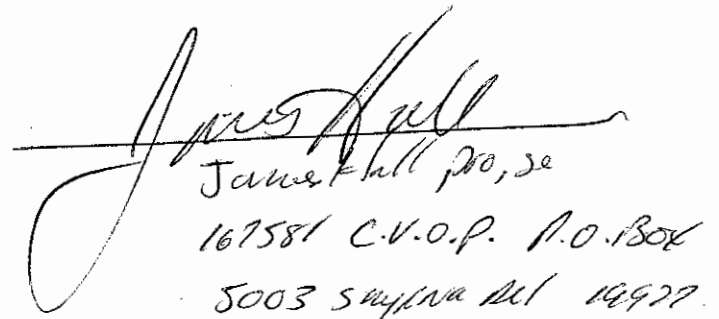 James Hall
James Hall pro, se
167581 C.V.O.P. P.O. Box
5003 Smyrna Del 19977